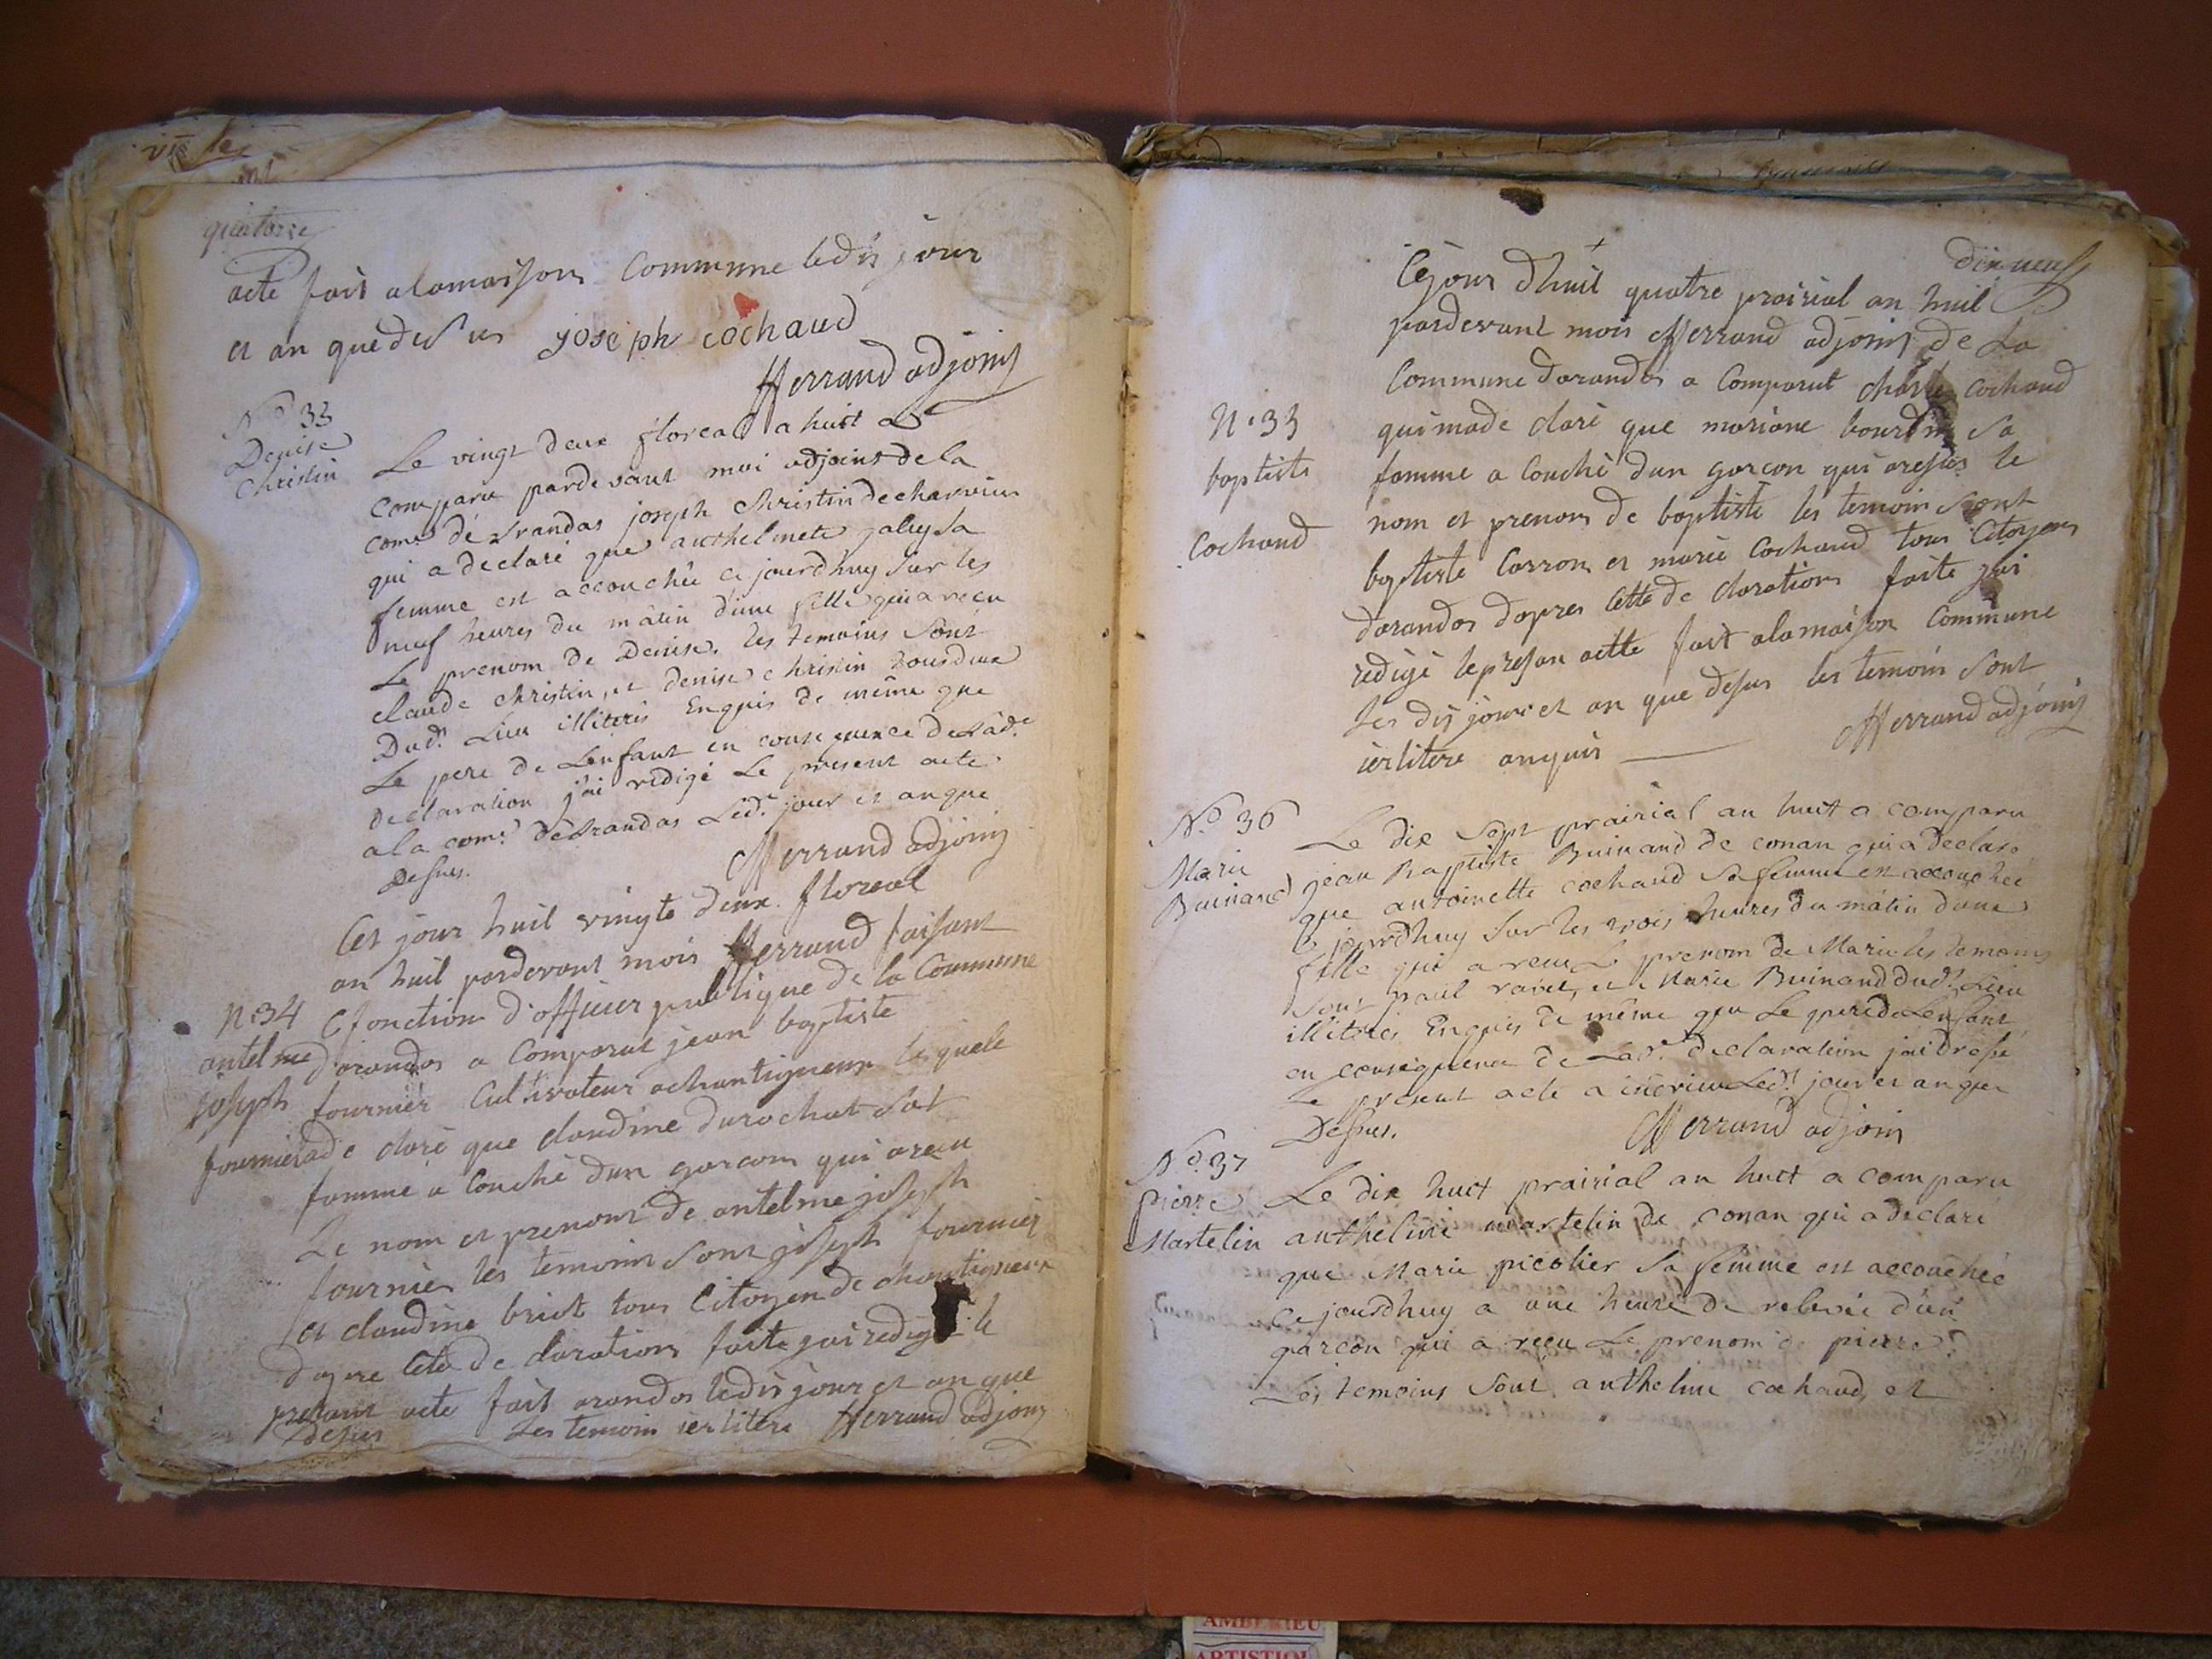 quatorze
acte fait alamaison Commune ledis jour
et an que desus joseph cochaud
Merrand adjoint
N.° 33
Denise
Christin
Le vingt deux floreal a huit a
comparu pardevant moi adjoint de la
com.e de Arandas joseph Christin de
qui a declaré que anthelmete galey sa
femme est accouchée ce jourdhuy sur les
neuf heures du mâtin d'une fille qui a reçu
Le prenom de Denise. les temoins sont
claude christin, et denise christin tous deux
Dud.t Lieu illiteris Enquis de même que
Le pere de Lenfant en consequence de Lad.e
declaration j'ai redigé Le present acte
a la com.e de Arandas Led.t jour et an que
Desus.
Merrand adjoint
Cet jour huit vingte deux floreal
an huit pardevant mois Merrand faisant
N°34
antelme
joseph
fournier
fonction d'officier publique de la Commune
darandas a Comparut jean baptiste
fournier Cultivateur achantigneux lequele
a de claré que claudine durochat sat
famme a Couché dun garcons qui areçu
Le nom et prenoms de antelme joseph
fournier les temoins sont joseph fournier
et claudine briet tous Citoyen de chantigneux
dapre cete de clarations faite jai redigé le
presant acte fait arandas ledis jour et an que
desus Les temoin ierlitere Merrand adjoint
dix neuf
Cejour dhuit quatre prairial an huit
pardevant mois Merrand adjoint de La
Commune darandas a Comparut charle cochaud
N°33
baptiste
Cochaud
quimade claré que mariane bourdin sa
famme a Couché dun garcon qui aresus le
nom et prenom de baptiste les temoin sont
baptiste Carron et marie Cochaud tous Citoyens
darandas dapres cette de clarations faite jai
redigé lepresan actte fait alamaison Commune
Les dis jour et an que desus les temoin sont
ierlitere anquis
Merrand adjoint
N.° 36
Marie
Buinand
Le dix sept prairial an huit a comparu
jean Baptiste Buinand de conan qui a declaré
que antoinette cochaud sa femme est accouchée
ce jourdhuy sur les trois heures du mâtin dune
fille qui a recu Le prenom de Marie les temoins
sont paul ravet, et Marie Buinand dud.t Lieu
illiteres Enquis de même que Le pere de Lenfant
en consequence de Lad.e declaration jai dressé
Le present acte a Led.t jour et an que
Desus.
Merrand adjoin
N.° 37
pierre
Martelin
Le dix huit prairial an huit a comparu
anthelme martelin de conan qui a declaré
que Marie picolier sa femme est accouchée
ce jourdhuy a une heure de relevée d'un
garcon qui a reçu Le prenom de pierre.
Les temoins sont anthelme cochaud, et
AMBERIEU